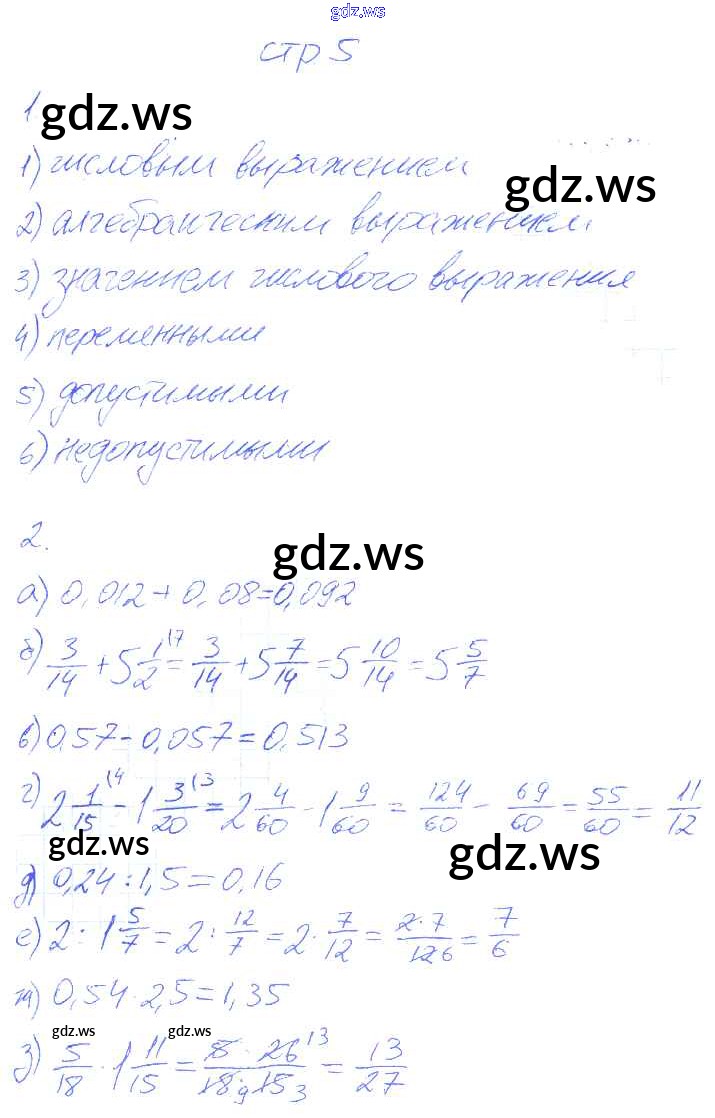 gdz.ws
стр 5
1.
gdz.ws
1) числовым выражением
gdz.ws
2) алгебраическим выражением
3) значением числового выражения
4) переменными
5) допустимыми
6) недопустимыми
2.
gdz.ws
а) 0,012 + 0,08 = 0,092
б) 3/14 + 5 1/2 (7 = 3/14 + 5 7/14 = 5 10/14 = 5 5/7
в) 0,57 - 0,057 = 0,513
г) 2 1/15 (4 - 1 3/20 (3 = 2 4/60 - 1 9/60 = 124/60 - 69/60 = 55/60 = 11/12
gdz.ws gdz.ws
д) 0,24 : 1,5 = 0,16
е) 2 : 1 5/7 = 2 : 12/7 = 2 · 7/12 = 2·7/12 6 = 7/6
ж) 0,54 · 2,5 = 1,35
gdz.ws gdz.ws
з) 5/18 · 1 11/15 = 5 · 26 13/18 9 · 15 3 = 13/27